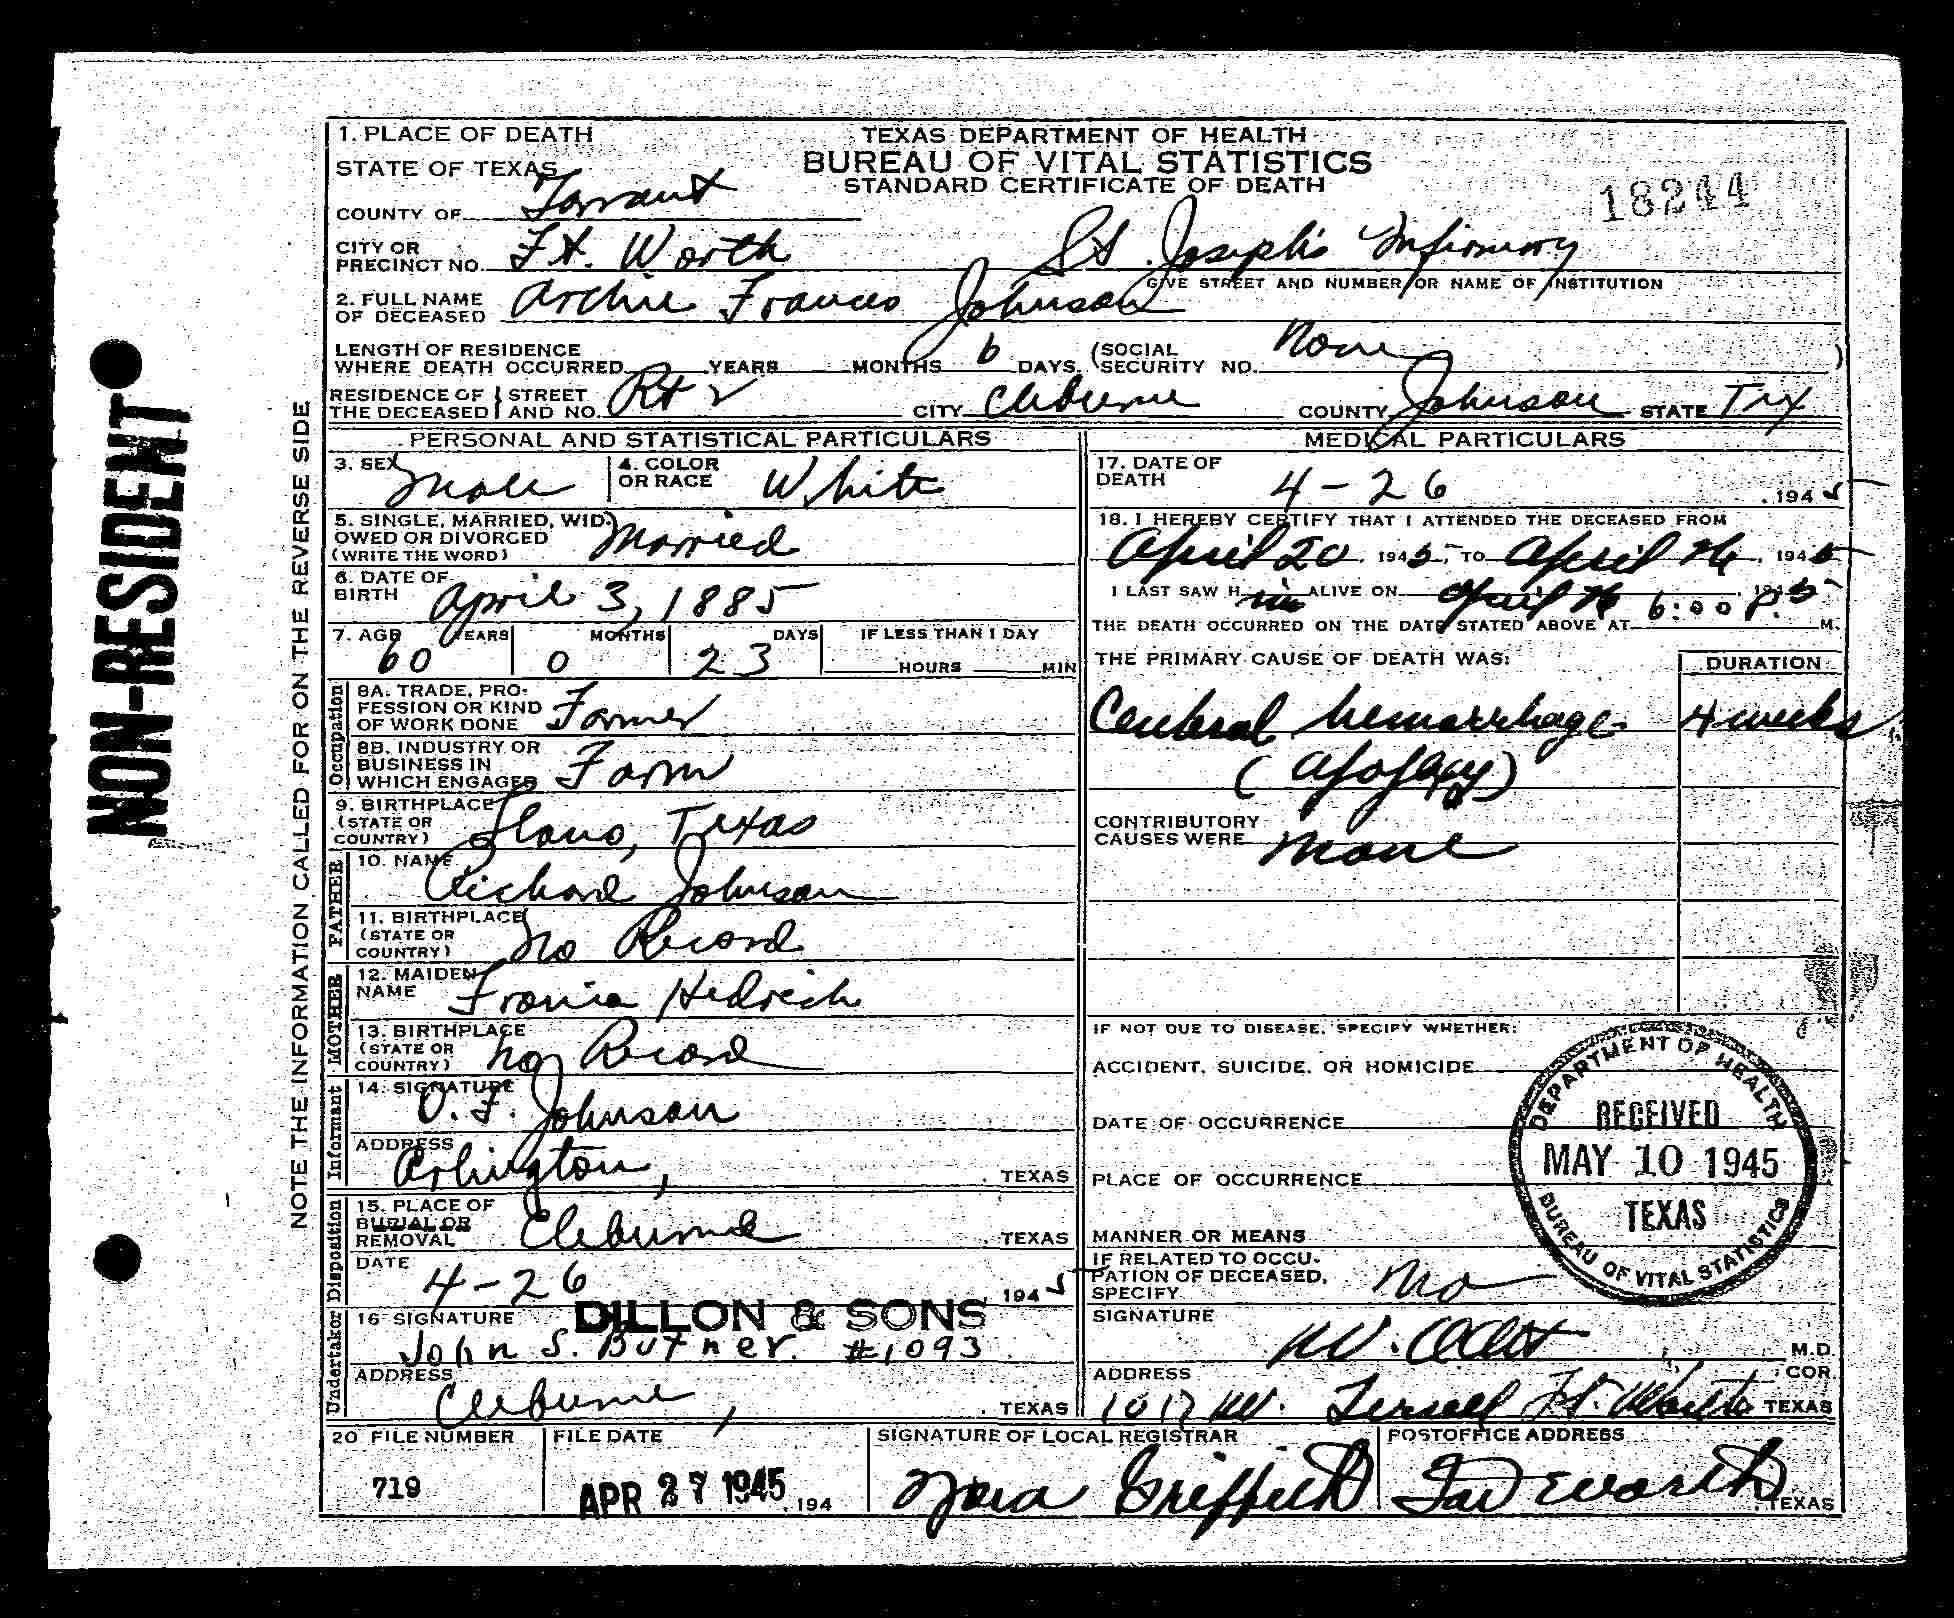 NON-RESIDENT
NOTE THE INFORMATION CALLED FOR ON THE REVERSE SIDE
1. PLACE OF DEATH
STATE OF TEXAS
TEXAS DEPARTMENT OF HEALTH
BUREAU OF VITAL STATISTICS
STANDARD CERTIFICATE OF DEATH
18244
COUNTY OF Tarrant
CITY OR PRECINCT NO. Ft. Worth St. Joseph's Infirmary
GIVE STREET AND NUMBER OR NAME OF INSTITUTION
2. FULL NAME OF DECEASED Archie Frances Johnson
LENGTH OF RESIDENCE WHERE DEATH OCCURRED YEARS MONTHS 6 DAYS. (SOCIAL SECURITY NO. None )
RESIDENCE OF THE DECEASED STREET AND NO. Rt 2 CITY Cleburne COUNTY Johnson STATE Tex
PERSONAL AND STATISTICAL PARTICULARS
3. SEX Male 4. COLOR OR RACE White
5. SINGLE, MARRIED, WIDOWED OR DIVORCED (WRITE THE WORD) Married
6. DATE OF BIRTH April 3, 1885
7. AGE YEARS MONTHS DAYS IF LESS THAN 1 DAY
60 0 23 HOURS MIN
Occupation
8A. TRADE, PROFESSION OR KIND OF WORK DONE Farmer
8B. INDUSTRY OR BUSINESS IN WHICH ENGAGED Farm
9. BIRTHPLACE (STATE OR COUNTRY) Llano, Texas
FATHER
10. NAME Richard Johnson
11. BIRTHPLACE (STATE OR COUNTRY) No Record
MOTHER
12. MAIDEN NAME Hedrick
13. BIRTHPLACE (STATE OR COUNTRY) No Record
Informant
14. SIGNATURE O. F. Johnson
ADDRESS Arlington, TEXAS
Disposition
15. PLACE OF BURIAL OR REMOVAL Cleburne TEXAS
DATE 4-26 1945
Undertaker
16 SIGNATURE DILLON & SONS
John S. Butner. #1093
ADDRESS Cleburne, TEXAS
MEDICAL PARTICULARS
17. DATE OF DEATH 4-26, 1945
18. I HEREBY CERTIFY THAT I ATTENDED THE DECEASED FROM
April 20, 1945, TO April 26, 1945
I LAST SAW H im ALIVE ON April 26 1945
THE DEATH OCCURRED ON THE DATE STATED ABOVE AT 6:00 P. M.
THE PRIMARY CAUSE OF DEATH WAS: DURATION
Cerebral hemorrhage 4 weeks
(apoplexy)
CONTRIBUTORY CAUSES WERE None
IF NOT DUE TO DISEASE, SPECIFY WHETHER:
ACCIDENT, SUICIDE, OR HOMICIDE
DATE OF OCCURRENCE
PLACE OF OCCURRENCE
MANNER OR MEANS
IF RELATED TO OCCUPATION OF DECEASED, SPECIFY No
DEPARTMENT OF HEALTH
RECEIVED
MAY 10 1945
TEXAS
BUREAU OF VITAL STATISTICS
SIGNATURE M.D.
COR.
ADDRESS 1017 W. Terrell Ft. Worth TEXAS
20 FILE NUMBER FILE DATE SIGNATURE OF LOCAL REGISTRAR POSTOFFICE ADDRESS
719 APR 27 1945, 194 Griffith Fort Worth, TEXAS